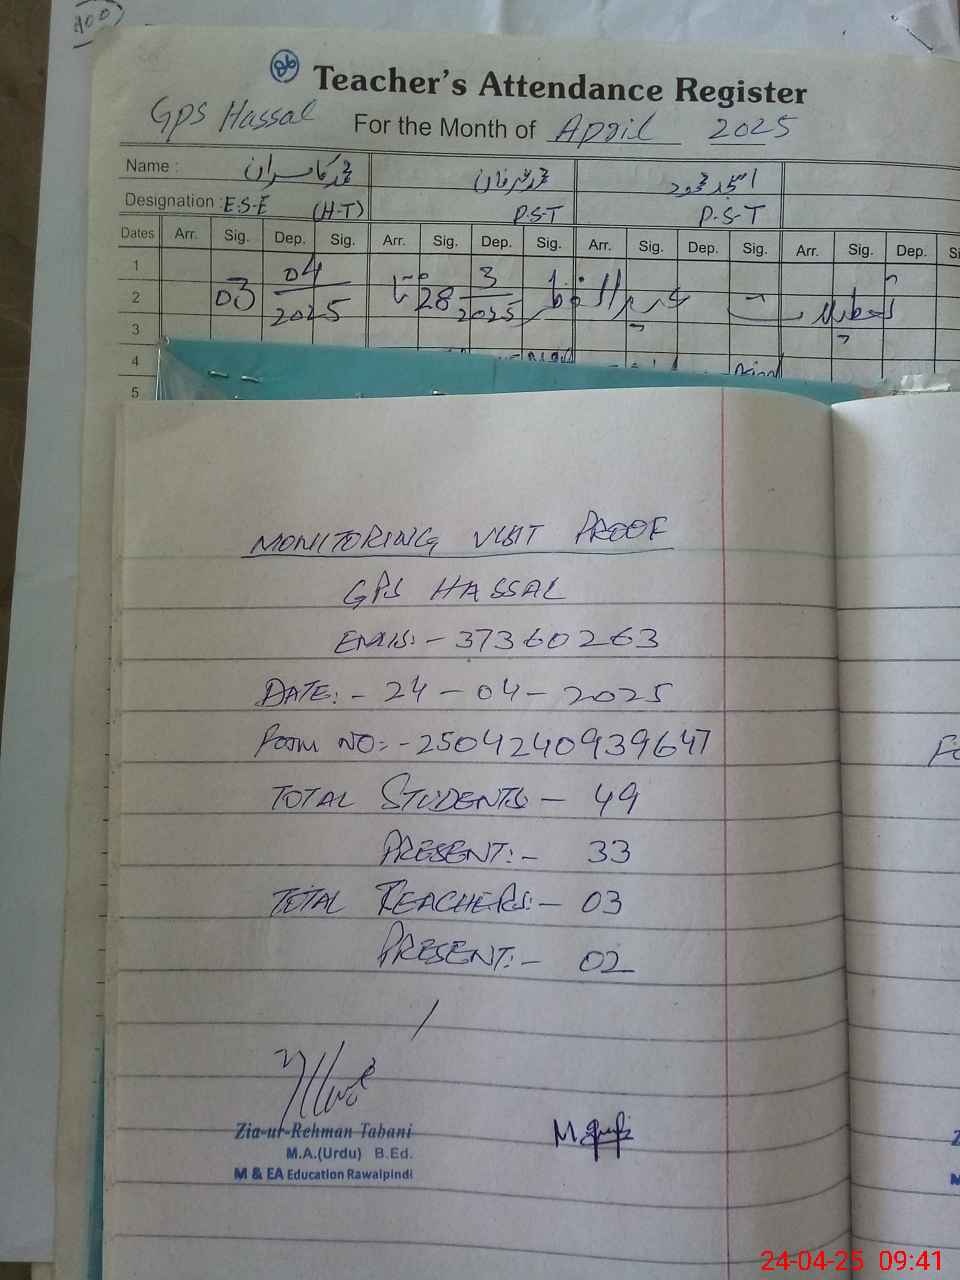 400
86
Teacher's Attendance Register
GPS Hassal
For the Month of April 2025
Name : محمد کامران محمد عرفان امجد محمود
Designation : E.S.E (H-T) P.S.T P.S.T
Dates Arr. Sig. Dep. Sig. Arr. Sig. Dep. Sig. Arr. Sig. Dep. Sig. Arr. Sig. Dep. Si
1
2 03 04 2025 28 3 2025
3
4
5
MONITORING VISIT PROOF
GPS HASSAL
EMIS:- 37360263
DATE:- 24-04-2025
FORM NO:- 2504240939647
TOTAL STUDENTS - 49
PRESENT:- 33
TOTAL TEACHERS:- 03
PRESENT:- 02
Zia-ur-Rehman Tabani
M.A.(Urdu) B.Ed.
M & EA Education Rawalpindi
24-04-25 09:41